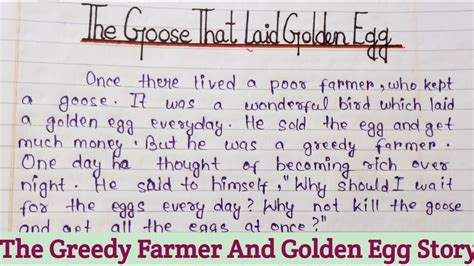 The Goose That Laid Golden Egg
Once there lived a poor farmer, who kept
a goose. It was a wonderful bird which laid
a golden egg everyday. He sold the egg and get
much money. But he was a greedy farmer.
One day he thought of becoming rich over
night. He said to himself, "Why should I wait
for the eggs every day? Why not kill the goose
and get all the eggs at once?"
The Greedy Farmer And Golden Egg Story